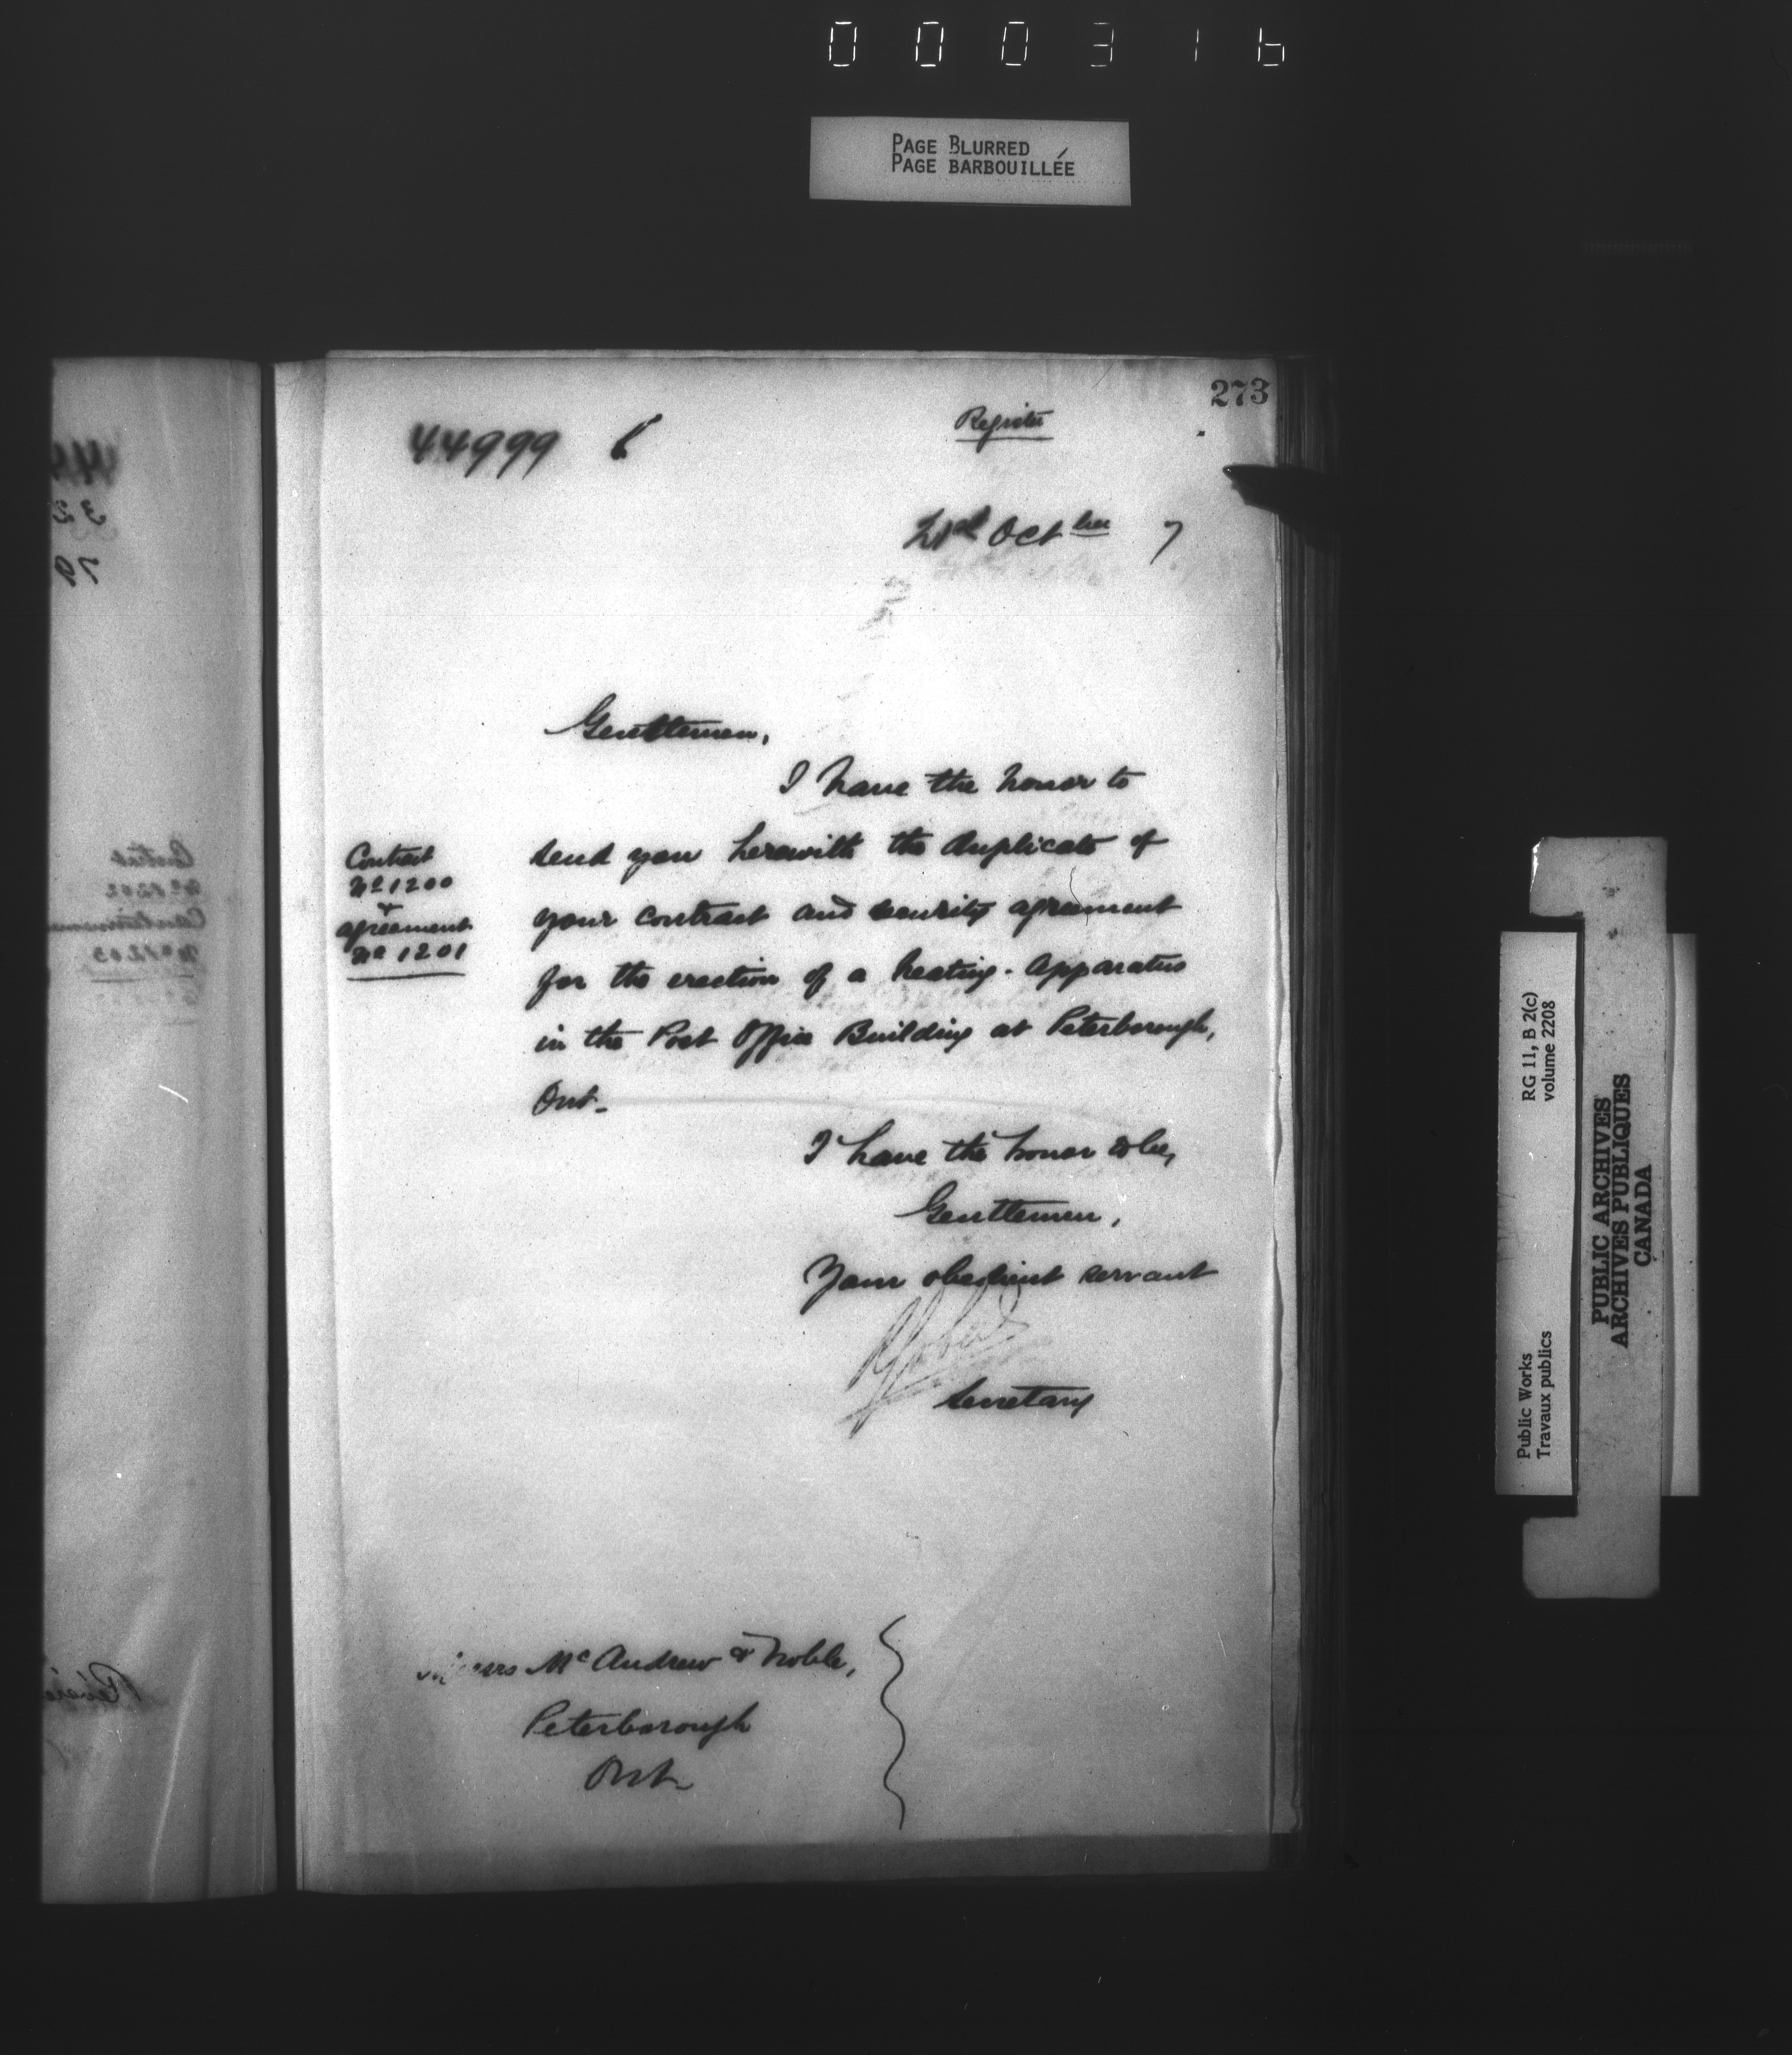 000316
PAGE BLURRED
PAGE BARBOUILLÉE
273
44999
Register
21st Octber 7
Gentlemen,
I have the honor to
send you herewith the duplicate of
your contract and security agreement
for the erection of a heating-apparatus
in the Post Office Building at Peterborough,
Ont-
Contract
No 1200
&
agreement
No 1201
I have the honor to be,
Gentlemen,
Your obedient servant
Secretary
Messrs McAndrew & Noble,
Peterborough
Ont-
RG 11, B 2(c)
volume 2208
Public Works
Travaux publics
PUBLIC ARCHIVES
ARCHIVES PUBLIQUES
CANADA